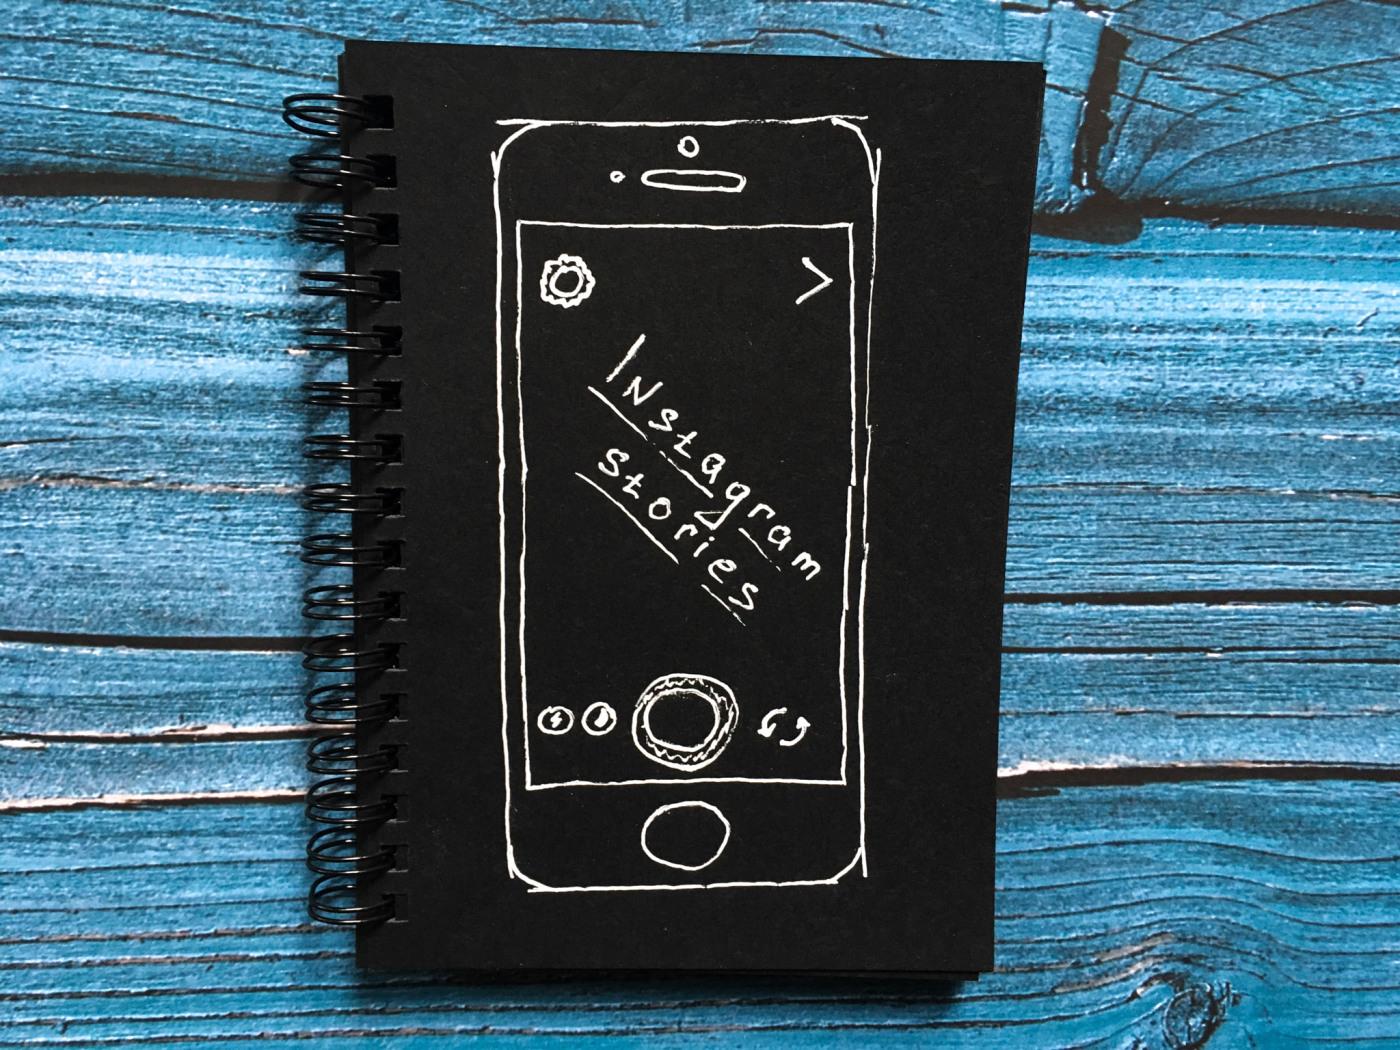 Instagram
stories